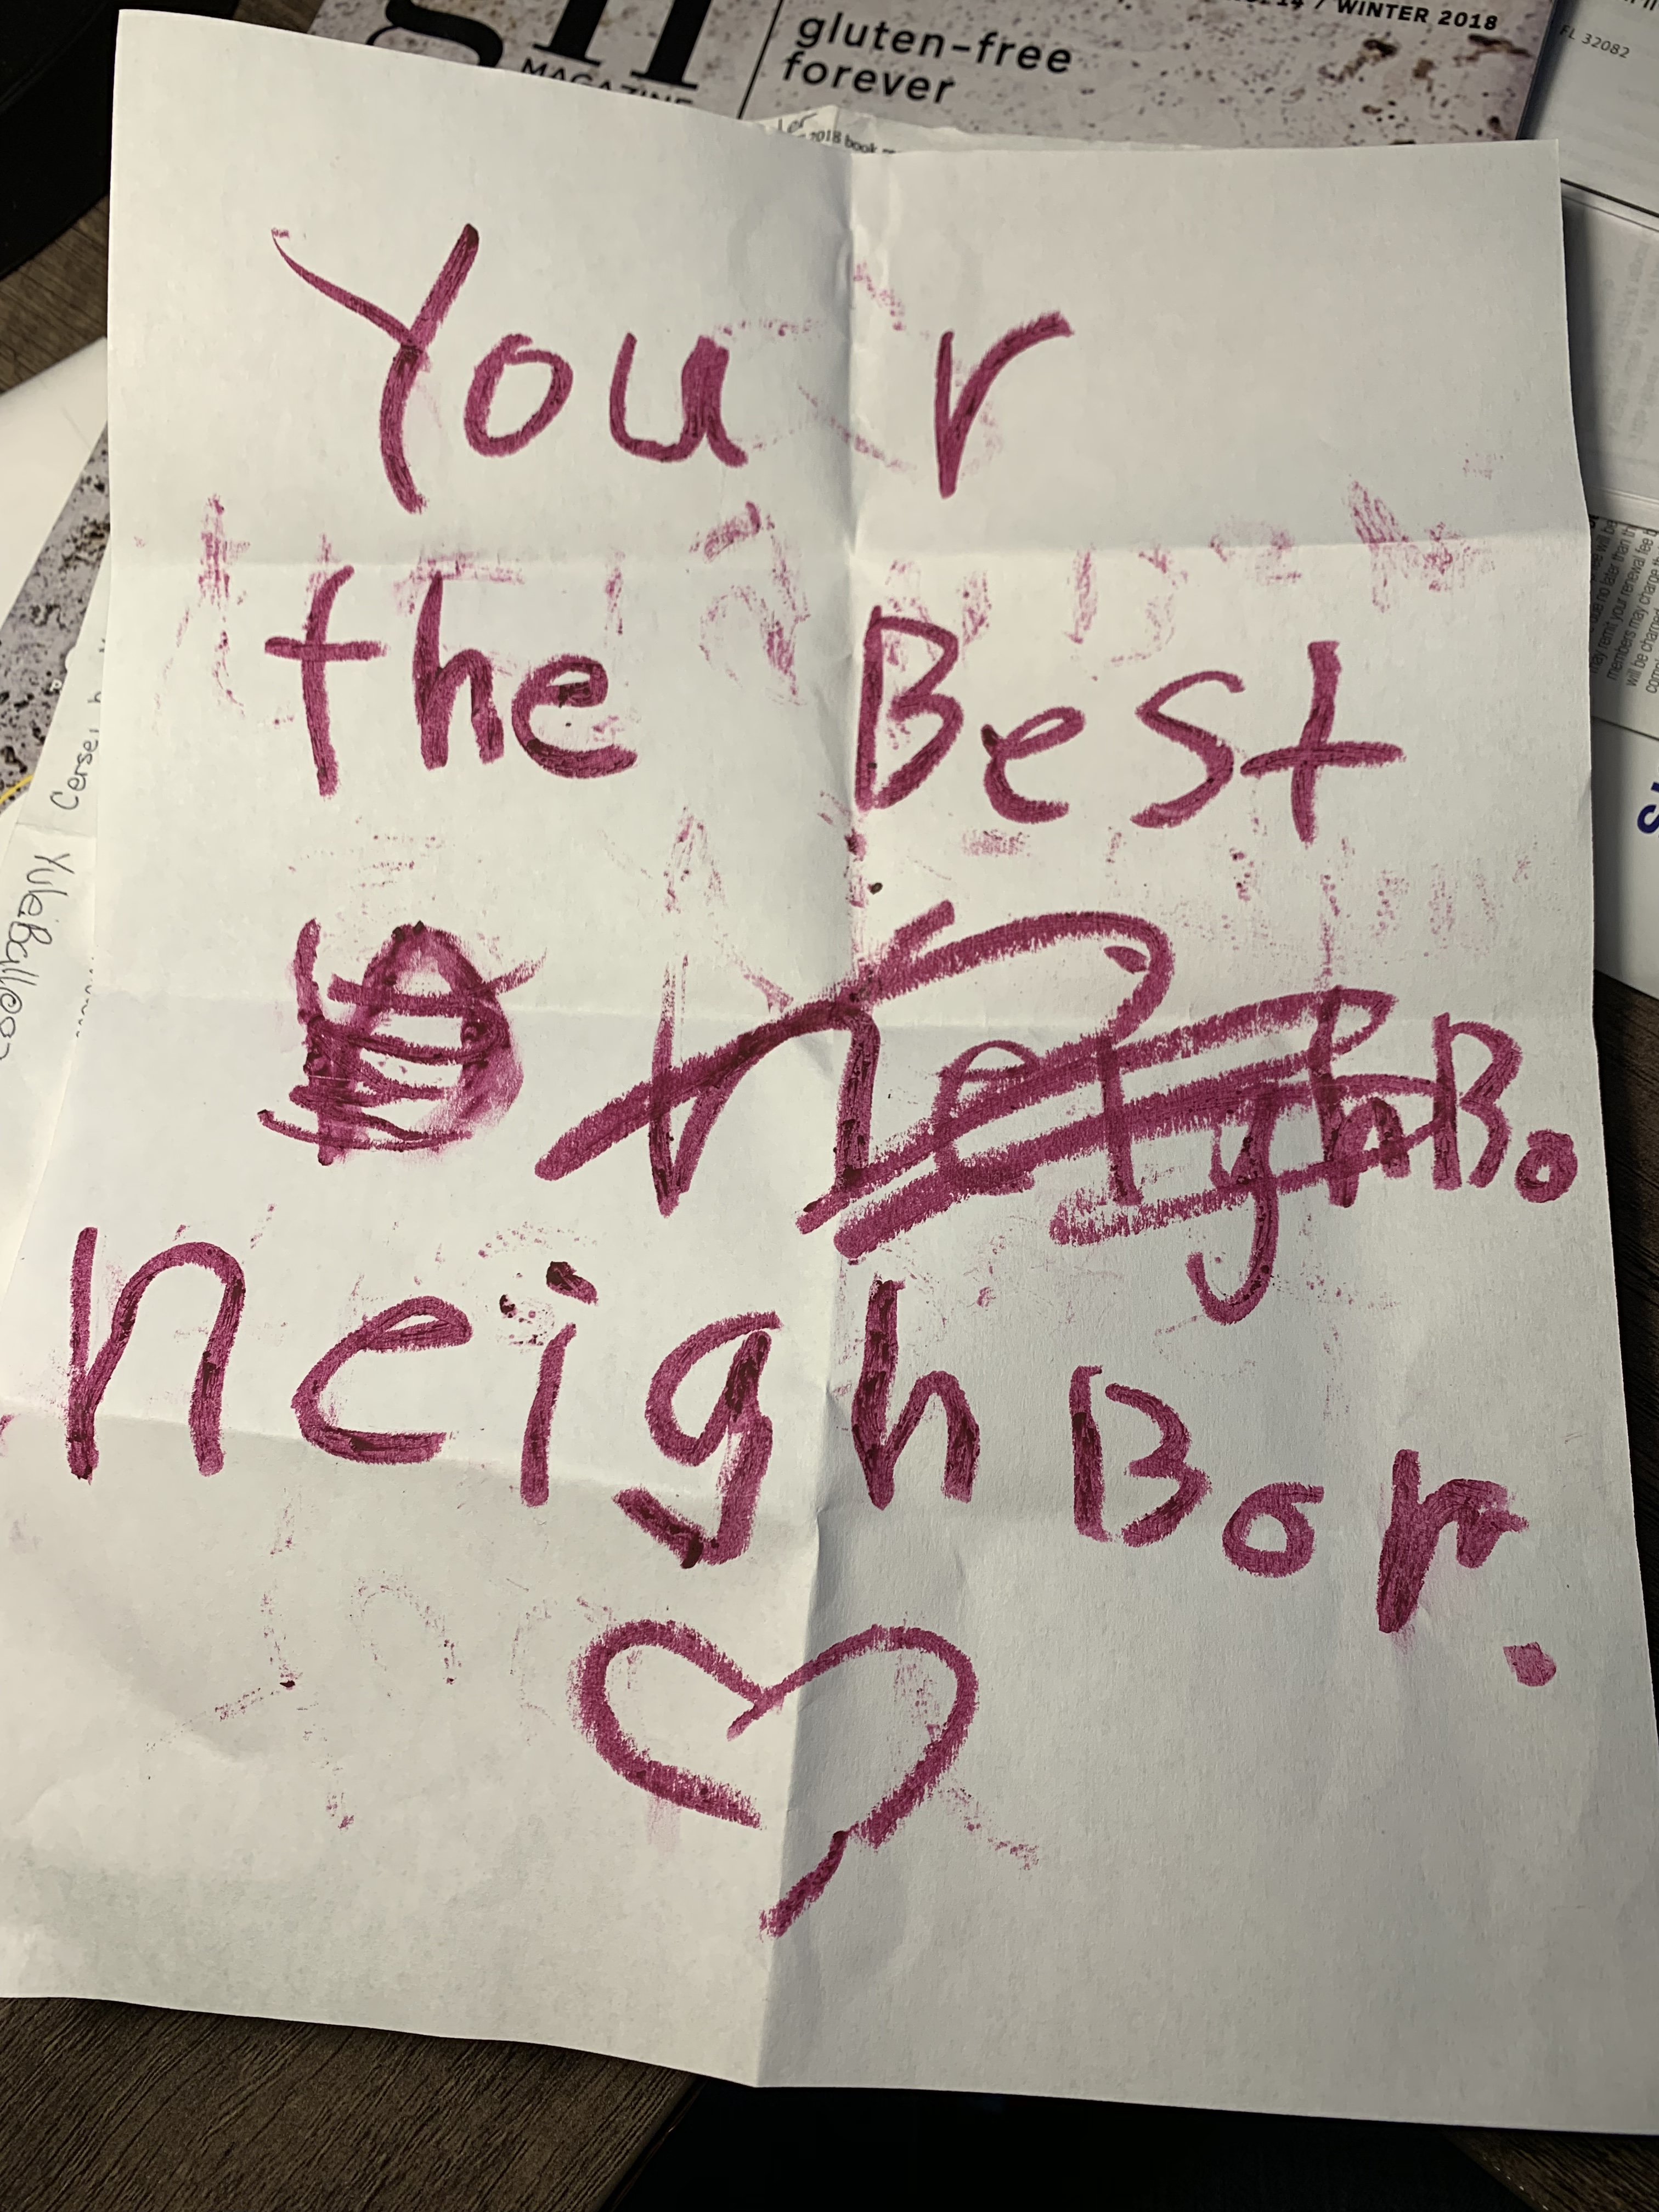 MAGAZINE
gluten-free
forever
14 / WINTER 2018
FL 32082
2018 book
You r
the Best
neighBo
neighBor.